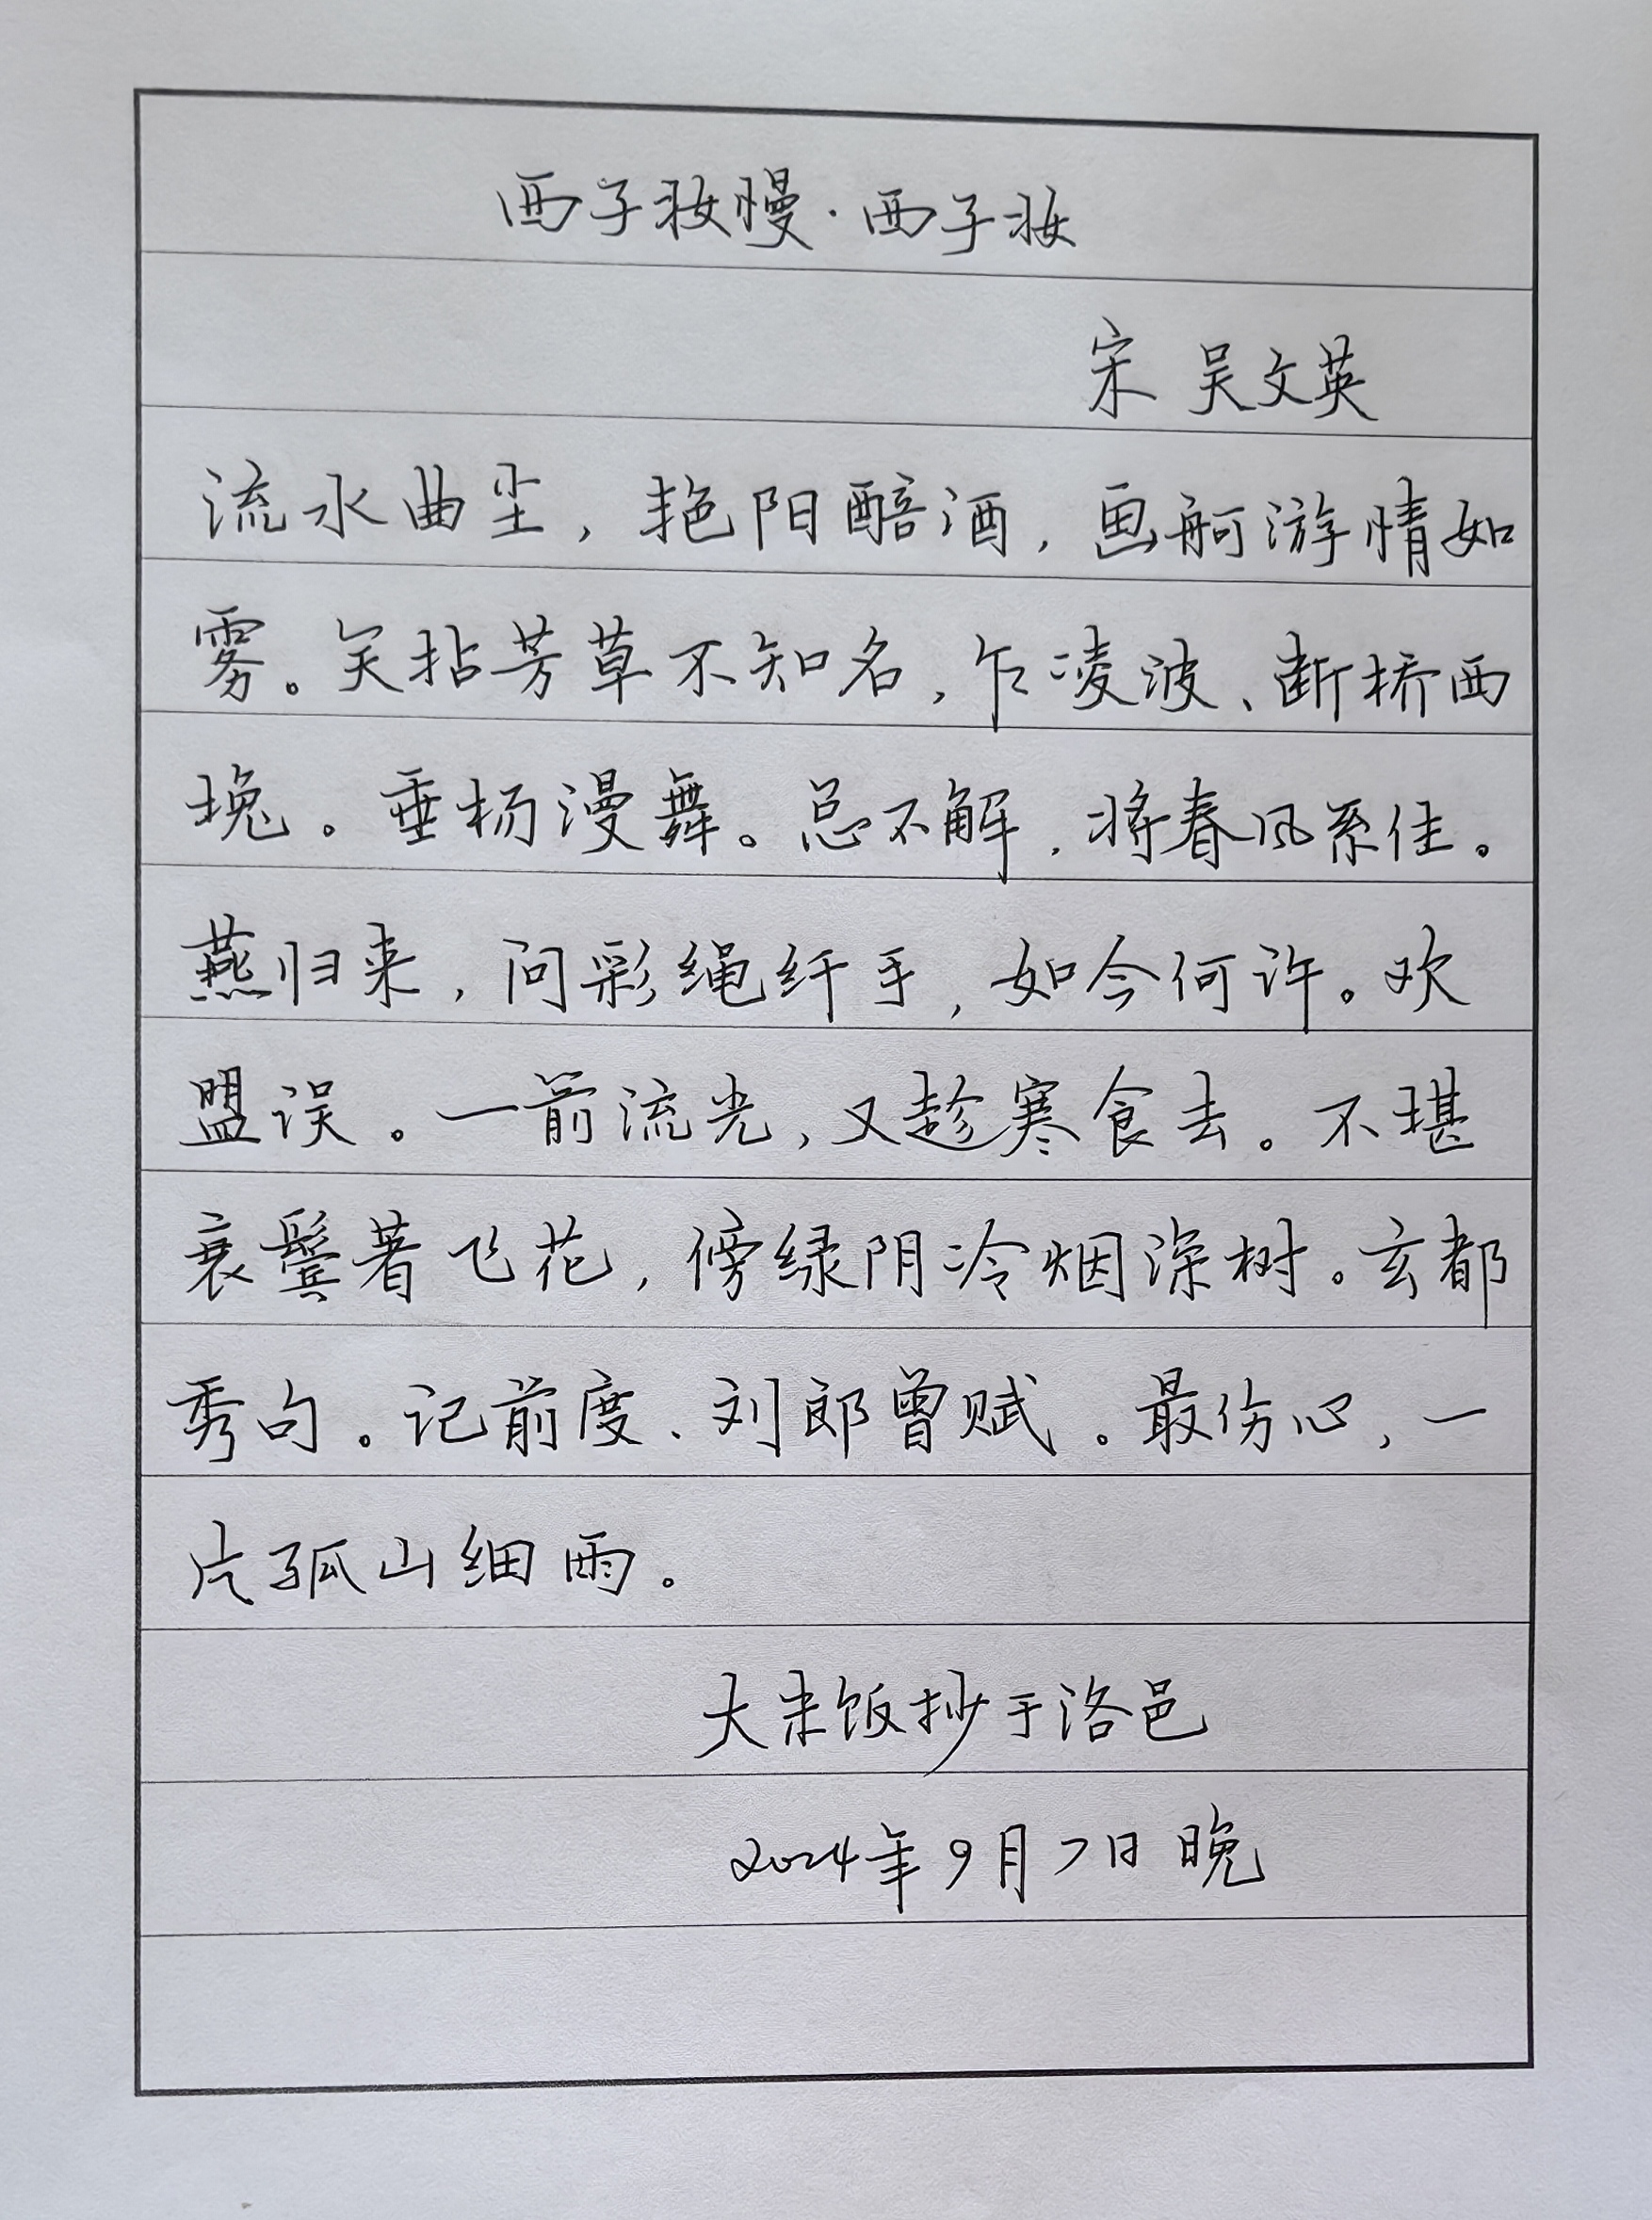 西子妆慢·西子妆
宋 吴文英
流水曲尘，艳阳醅酒，画舸游情如
雾。笑拈芳草不知名，乍凌波、断桥西
堍。垂杨漫舞。总不解，将春风系住。
燕归来，问彩绳纤手，如今何许。欢
盟误。一箭流光，又趁寒食去。不堪
衰鬓著飞花，傍绿阴冷烟深树。玄都
秀句。记前度、刘郎曾赋。最伤心，一
片孤山细雨。
大米饭抄于洛邑
2024年9月7日 晚